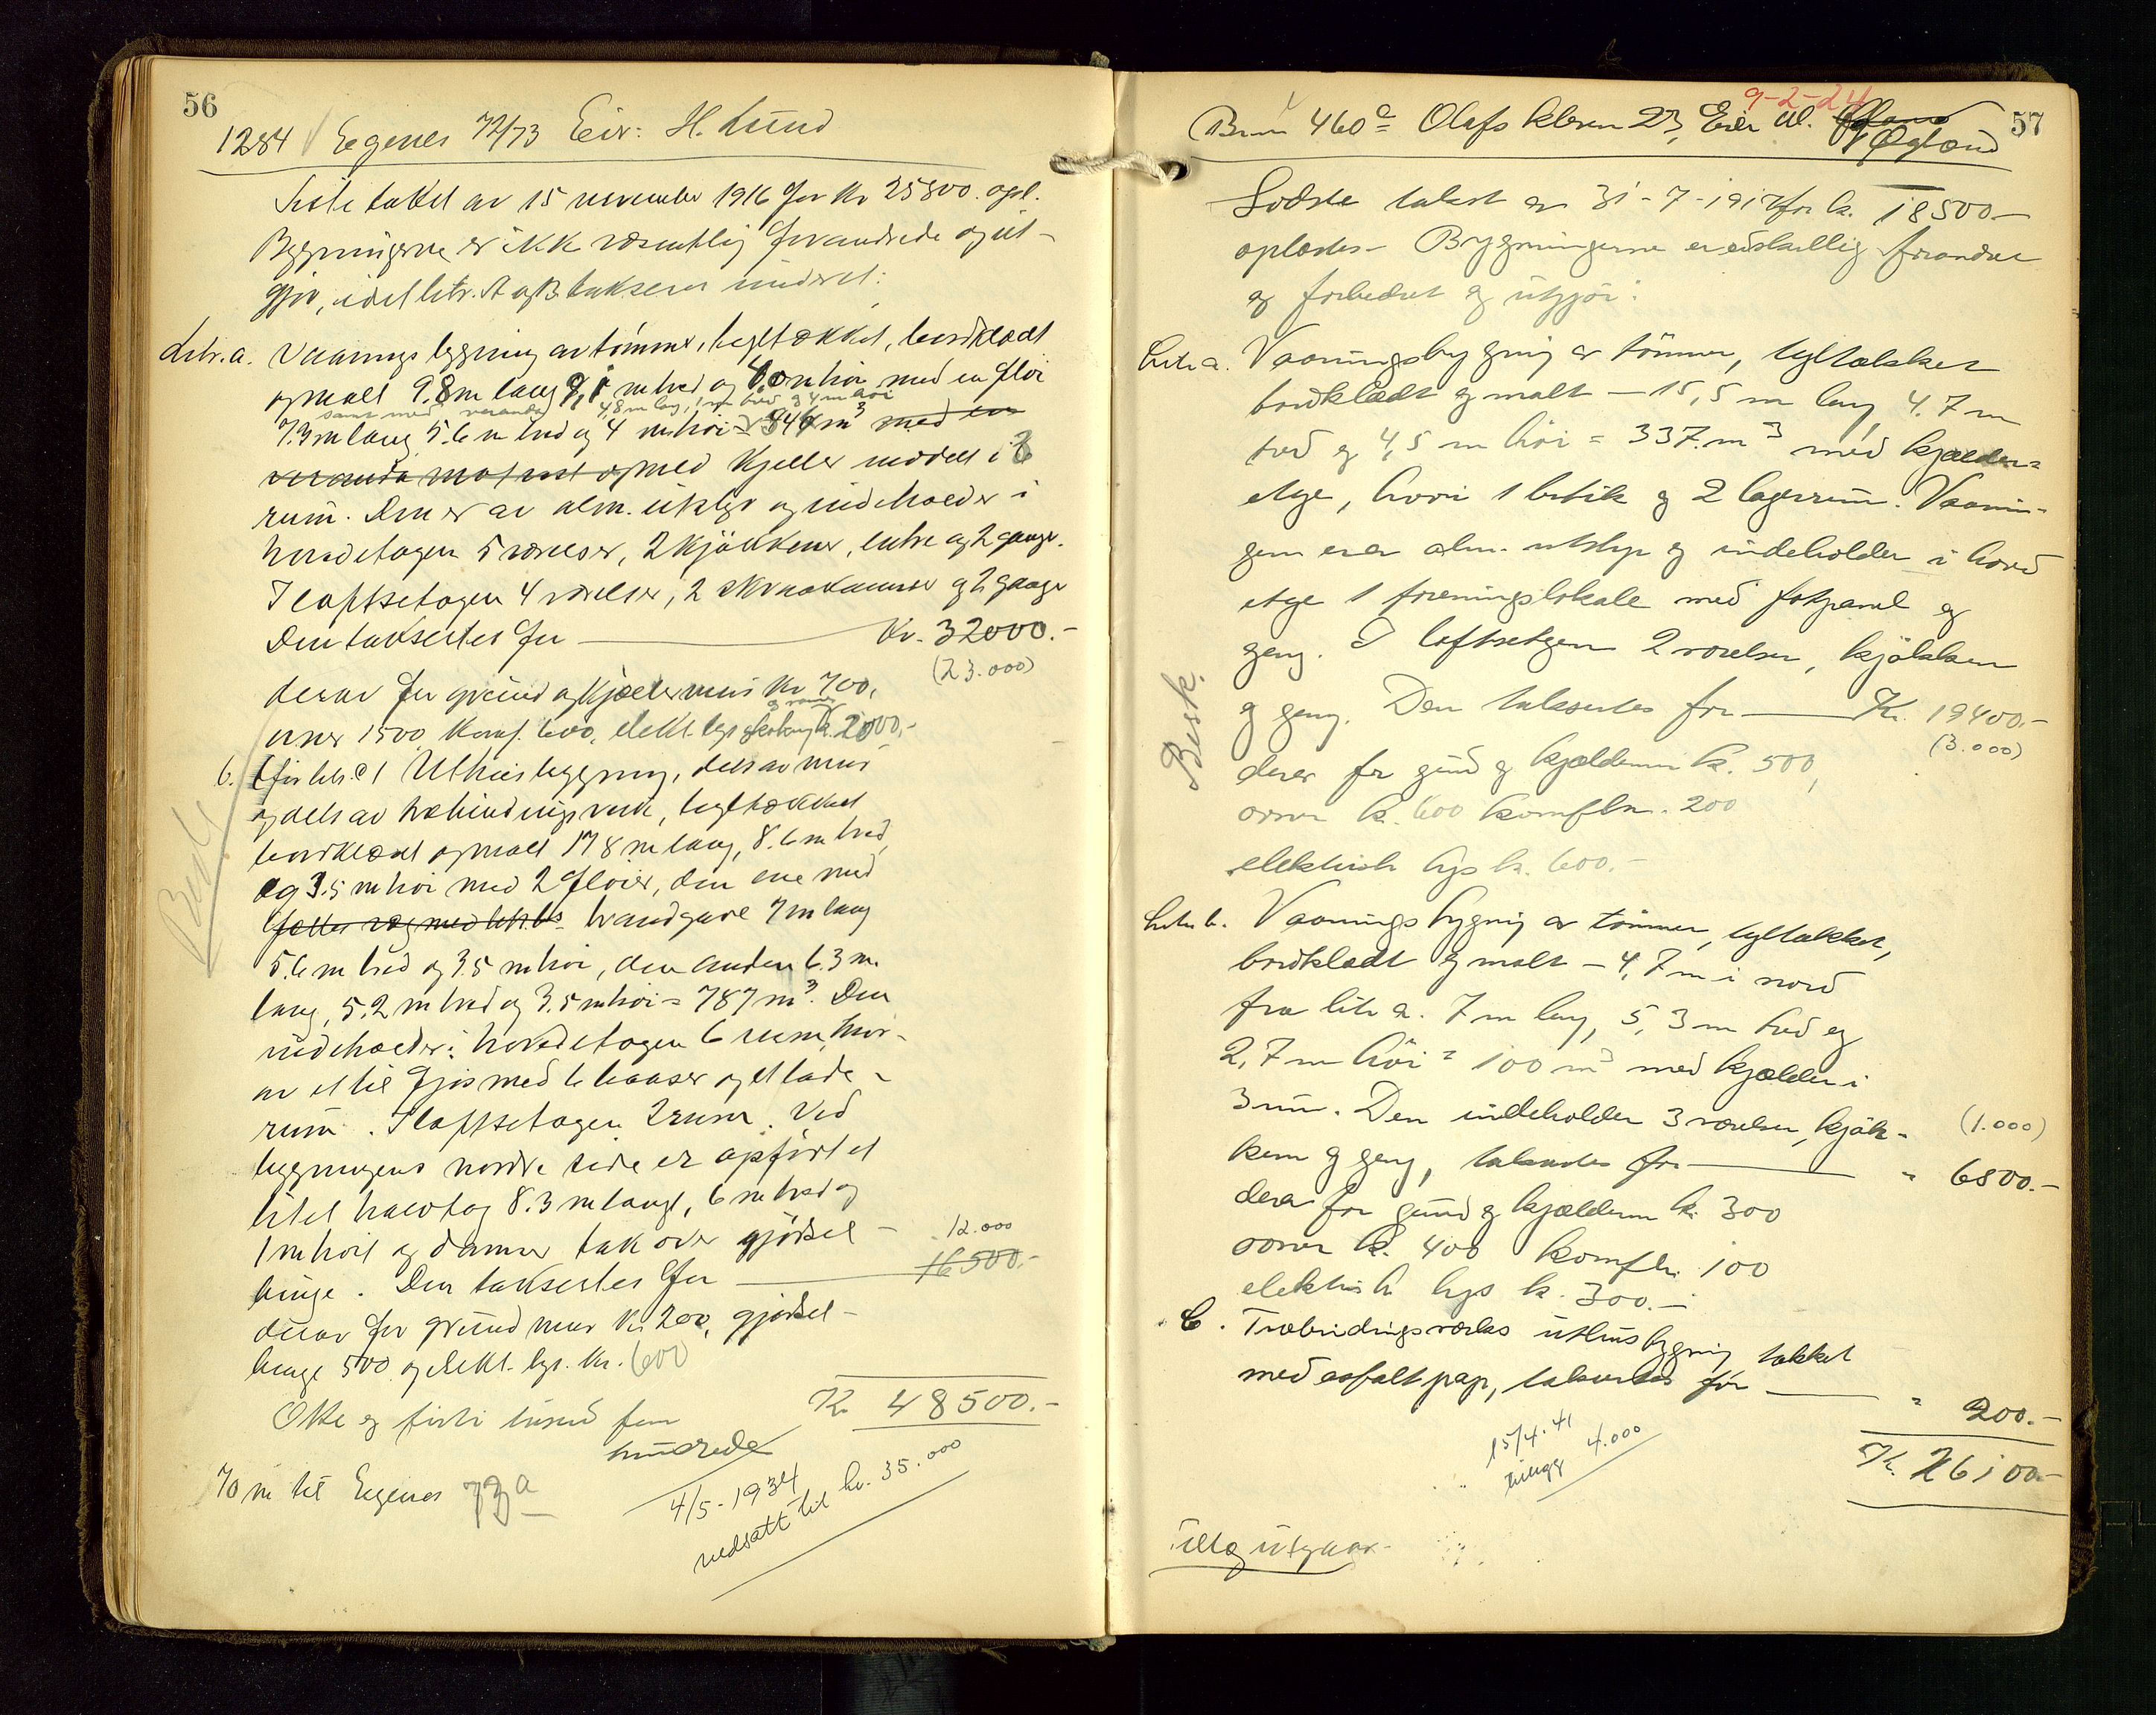 56
1284 Egenes 72/73 Eier: H. Lund
Siste takst av 15 november 1916 for Kr 25800. opl.
Bygningerne er ikke væsentlig forandrede og ut-
gjør, idet litr. A og B takseres under et:
Litr. a. Vaaningsbygning av tømmer, tegltækket, bordklædt
og malt 9.8 m lang 9,1 m bred og 6,0 m høi med en fløi
samt med veranda 4,8 m lang, 1 m bred og 4 m høi
7.3 m lang 5.6 m bred og 4 m høi = 846 m³ med en
veranda mot vest og med kjelder inddelt i 8
rum. Den er av alm. utstyr og indeholder i
hovedetagen 5 værelser, 2 kjøkkener, entre og 2 gange.
I loftsetagen 4 værelser, 2 skraakammer og 2 gange
Den takseres for Kr. 32000.-
(23.000)
derav for grund og kjeldermur Kr 700,
ovner 1500 komf. 600, elekt. lys og vand Kr. 2000,-
b. (før litr. c) Uthusbygning, dels av mur
og dels av træbindingsverk, tegltækket
bordklædt og malt 17 8 m lang, 8.6 m bred,
og 3.5 m høi med 2 fløier, den ene med
fælles væg med litr. b brandgavl 7 m lang
5.6 m bred og 3.5 m høi, den anden 6.3 m.
lang, 5.2 m bred og 3.5 m høi = 787 m³. Den
indeholder i hovedetagen 6 rum, hvor-
av et til fjøs med 6 baaser og et lade-
rum. I loftsetagen 2 rum. Ved
bygningens nordre side er opført et
litet halvtag 8.3 m langt, 6 m bred og
1 m høit og danner tak over gjødsel-
12.000
binge. Den takseres for 16500.-
derav for grundmur Kr 200, gjødsel-
binge 500 og elekt. lys. Kr. 600
Kr 48500.-
Otte og firti tusend fem
hundrede
70 m til Egenes 73a
4/5-1934
nedsatt til kr. 35.000
Besk.
57
9-2-24
Brnr 460a Olafs kleven 23, Eier M. Øgland
Sidste takst av 31-7-1917 for kr. 18500.-
oplæstes. Bygningerne er adskillig forandret
og forbedret og utgjør:
Litr a. Vaaningsbygning av tømmer, tegltækket
bordklædt og malt - 15,5 m lang, 4.7 m
bred og 4,5 m høi = 337. m³ med kjælder=
etage, hvori 1 butik og 2 lagerrum. Vaanin-
gen er av alm. utstyr og indeholder i hoved
etage 1 foreningslokale med fotpanel og
gang. I loftsetagen 2 værelser, kjøkken
og gang. Den takseres for Kr. 19400.-
(3.000)
Besk.
derav for grund og kjældermur kr. 500,
ovner kr. 600 komfur kr. 200
elektrisk lys kr. 600.-
Litr b. Vaaningsbygning av tømmer, tegltækket,
bordklædt og malt - 4,7 m i nord
fra litr a. 7 m lang, 5,3 m bred og
2,7 m høi = 100 m³ med kjælder i
3 rum. Den indeholder 3 værelser, kjøk-
(1.000)
ken og gang, takseres for " 6500.-
derav for grund og kjældermur kr. 300
ovner kr. 400 komfur 100
elektrisk lys kr. 300.-
C. Træbindingsverks uthusbygning tækket
med asfaltpap, takseres for " 200.-
15/4.41
tillegg 4.000
Kr. 26100.-
Tillæg utgaar.